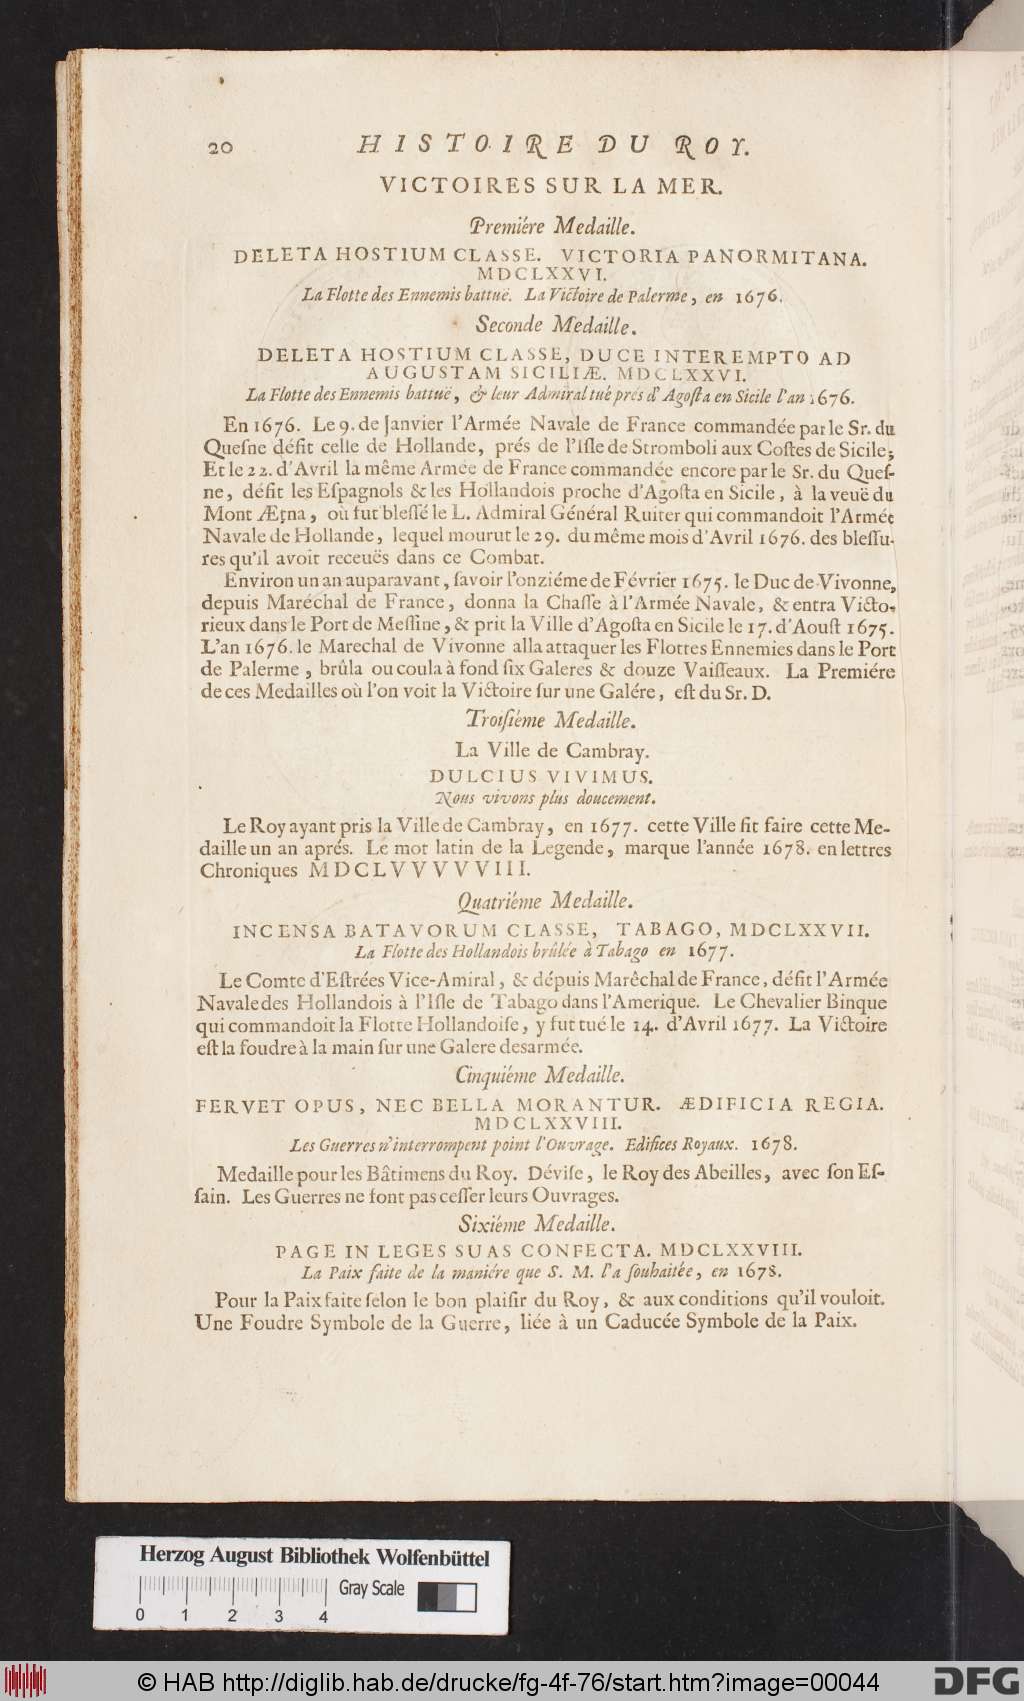 20 HISTOIRE DU ROY.
VICTOIRES SUR LA MER.
Premiére Medaille.
DELETA HOSTIUM CLASSE. VICTORIA PANORMITANA.
MDCLXXVI.
La Flotte des Ennemis battuë. La Victoire de Palerme, en 1676.
Seconde Medaille.
DELETA HOSTIUM CLASSE, DUCE INTEREMPTO AD
AUGUSTAM SICILIÆ. MDCLXXVI.
La Flotte des Ennemis battuë, & leur Admiral tué prés d'Agoſta en Sicile l'an 1676.
En 1676. Le 9. de Janvier l'Armée Navale de France commandée par le Sr. du
Queſne défit celle de Hollande, prés de l'Iſle de Stromboli aux Coſtes de Sicile;
Et le 22. d'Avril la même Armée de France commandée encore par le Sr. du Queſ-
ne, défit les Eſpagnols & les Hollandois proche d'Agoſta en Sicile, à la veuë du
Mont Ætna, où fut bleſſé le L. Admiral Général Ruiter qui commandoit l'Armée
Navale de Hollande, lequel mourut le 29. du même mois d'Avril 1676. des bleſſu-
res qu'il avoit receuës dans ce Combat.
Environ un an auparavant, ſavoir l'onziéme de Février 1675. le Duc de Vivonne,
depuis Maréchal de France, donna la Chaſſe à l'Armée Navale, & entra Victo-
rieux dans le Port de Meſſine, & prit la Ville d'Agoſta en Sicile le 17. d'Aouſt 1675.
L'an 1676. le Marechal de Vivonne alla attaquer les Flottes Ennemies dans le Port
de Palerme, brûla ou coula à fond ſix Galeres & douze Vaiſſeaux. La Premiére
de ces Medailles où l'on voit la Victoire ſur une Galére, eſt du Sr. D.
Troiſiéme Medaille.
La Ville de Cambray.
DULCIUS VIVIMUS.
Nous vivons plus doucement.
Le Roy ayant pris la Ville de Cambray, en 1677. cette Ville fit faire cette Me-
daille un an aprés. Le mot latin de la Legende, marque l'année 1678. en lettres
Chroniques MDCLVVVVVVIII.
Quatriéme Medaille.
INCENSA BATAVORUM CLASSE, TABAGO, MDCLXXVII.
La Flotte des Hollandois brûlée à Tabago en 1677.
Le Comte d'Eſtrées Vice-Amiral, & dépuis Marêchal de France, défit l'Armée
Navale des Hollandois à l'Iſle de Tabago dans l'Amerique. Le Chevalier Binque
qui commandoit la Flotte Hollandoiſe, y fut tué le 14. d'Avril 1677. La Victoire
eſt la foudre à la main ſur une Galere desarmée.
Cinquiéme Medaille.
FERVET OPUS, NEC BELLA MORANTUR. ÆDIFICIA REGIA.
MDCLXXVIII.
Les Guerres n'interrompent point l'Ouvrage. Edifices Royaux. 1678.
Medaille pour les Bâtimens du Roy. Déviſe, le Roy des Abeilles, avec ſon Eſ-
ſain. Les Guerres ne font pas ceſſer leurs Ouvrages.
Sixiéme Medaille.
PAGE IN LEGES SUAS CONFECTA. MDCLXXVIII.
La Paix faite de la maniére que S. M. l'a ſouhaitée, en 1678.
Pour la Paix faite ſelon le bon plaiſir du Roy, & aux conditions qu'il vouloit.
Une Foudre Symbole de la Guerre, liée à un Caducée Symbole de la Paix.
Herzog August Bibliothek Wolfenbüttel
Gray Scale
0 1 2 3 4
© HAB http://diglib.hab.de/drucke/fg-4f-76/start.htm?image=00044
DFG